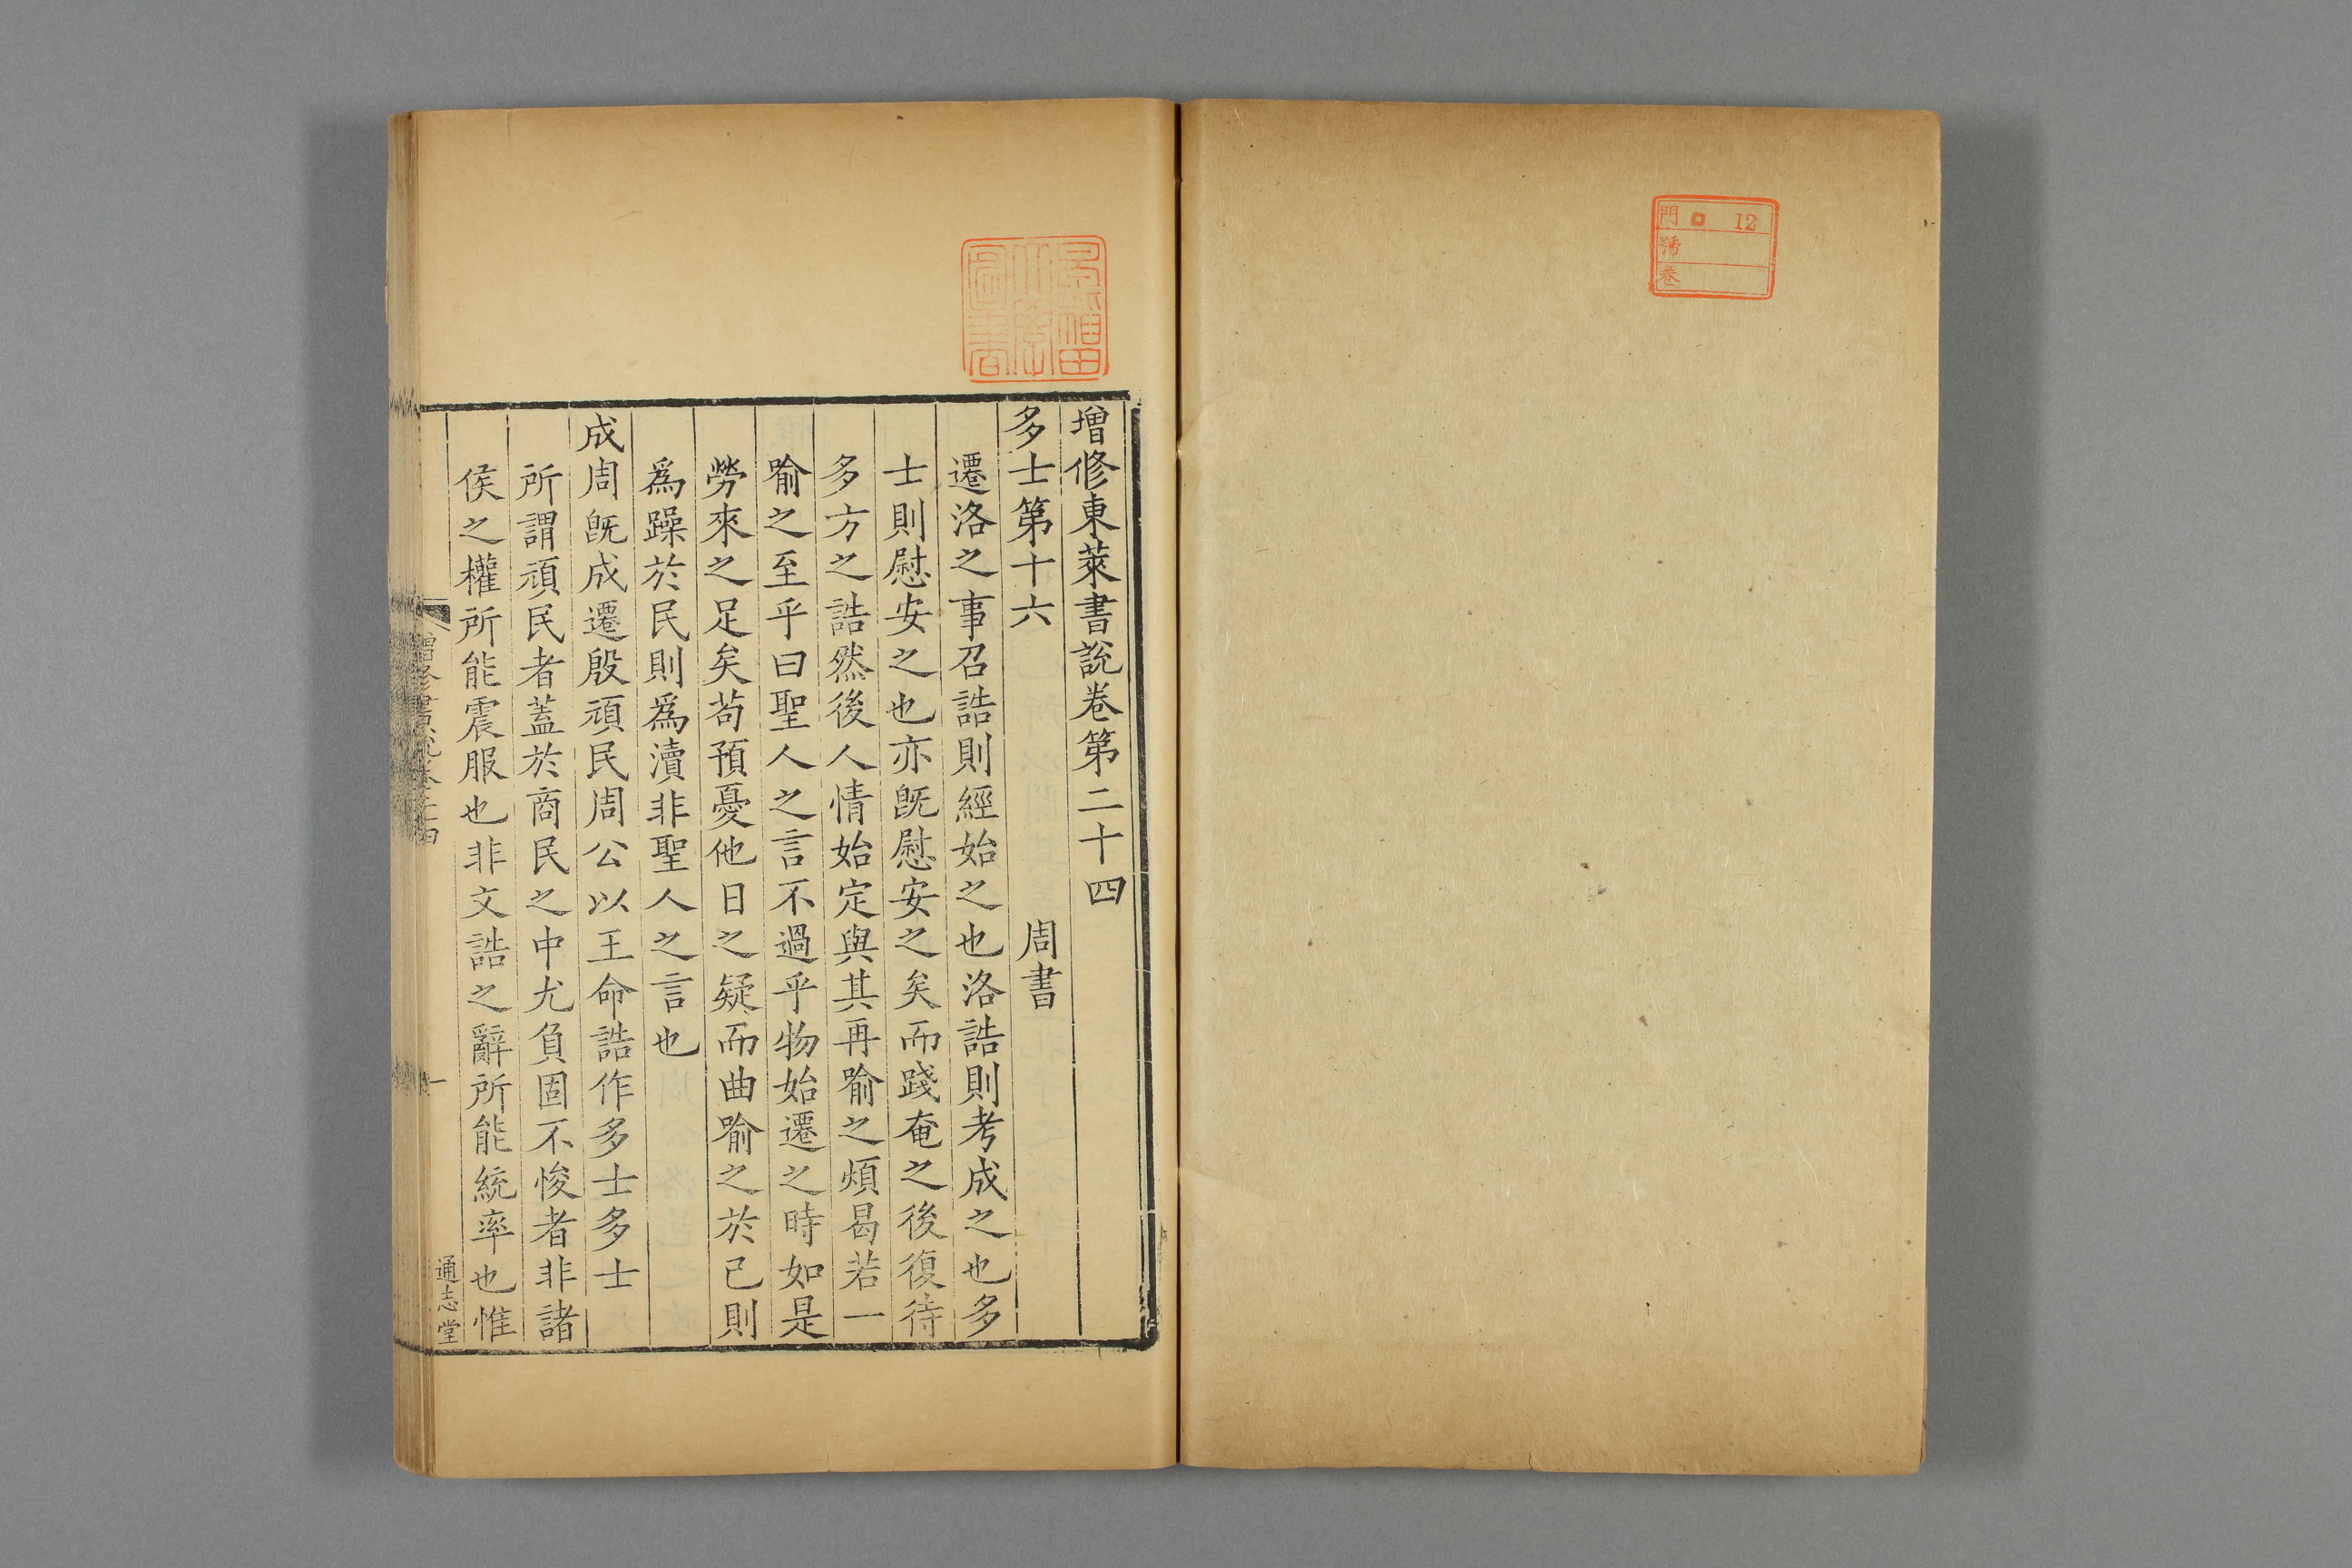 門 12
號
卷
增修東萊書說卷第二十四
多士第十六 周書
遷洛之事召誥則經始之也洛誥則考成之也多
士則慰安之也亦旣慰安之矣而踐奄之後復待
多方之誥然後人情始定與其再喻之煩曷若一
喻之至乎曰聖人之言不過乎物始遷之時如是
勞來之足矣苟預憂他日之疑而曲喻之於已則
爲躁於民則爲瀆非聖人之言也
成周旣成遷殷頑民周公以王命誥作多士多士
所謂頑民者蓋於商民之中尤負固不悛者非諸
侯之權所能震服也非文誥之辭所能統率也惟
增修書說卷二十四
一
通志堂